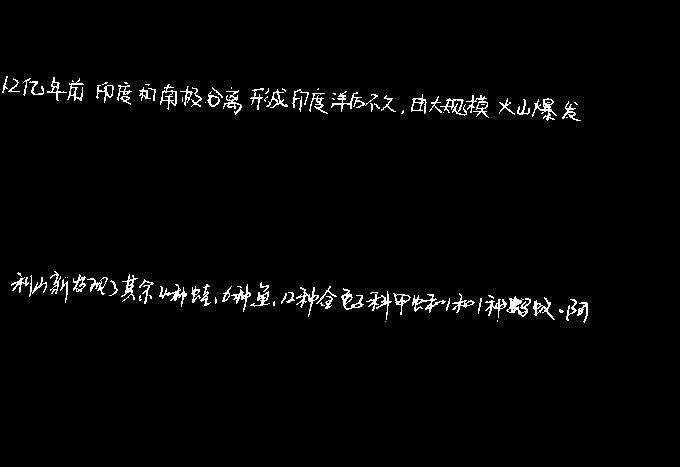 1.2亿年前印度和南极分离形成印度洋后不久,由大规模火山爆发
利山新发现了其余4种蛙,6种鱼,12种金龟子科甲虫和1种蚂蚁。阿